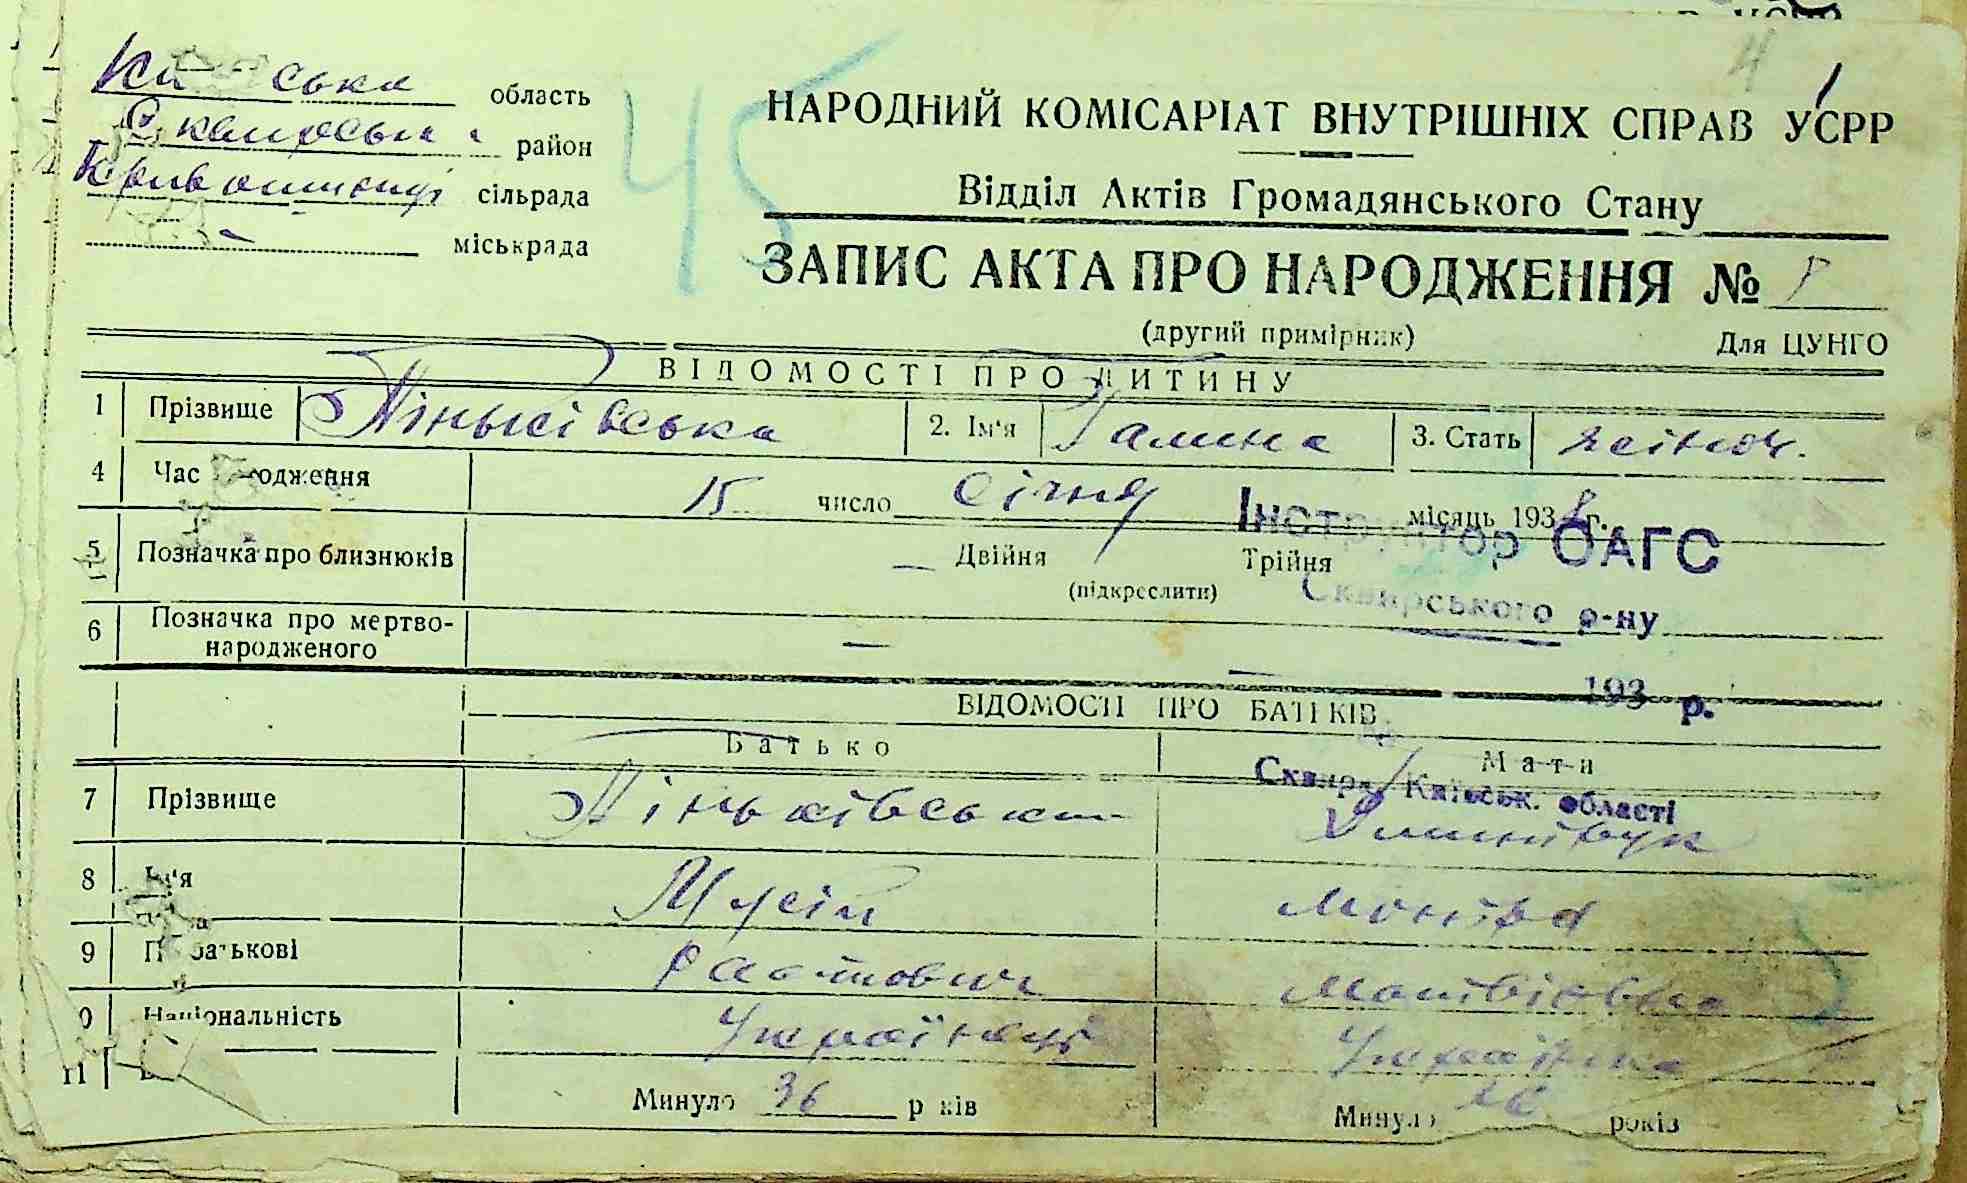 Ки ська область
Сквирська район
Кривошиїнці сільрада
міськрада
45
НАРОДНИЙ КОМІСАРІАТ ВНУТРІШНІХ СПРАВ УСРР
Відділ Актів Громадянського Стану
ЗАПИС АКТА ПРО НАРОДЖЕННЯ №
(другий примірник) Для ЦУНГО
ВІДОМОСТІ ПРО ДИТИНУ
1 Прізвище Піньківська 2. Ім'я Галина 3. Стать жіноч.
4 Час народження 15 число січня місяць 1938 г.
Інструктор ОАГС
5 Позначка про близнюків — Двійня Трійня
(підкреслити)
Сквирського р-ну
6 Позначка про мертво-
народженого —
193 р.
ВІДОМОСТІ ПРО БАТЬКІВ
Батько Мати
Сквира, Київськ. області
7 Прізвище Піньківський
8 Ім'я Мусій
9 По батькові Матвієвна
10 Національність Українець Українка
11 Минуло 36 років Минуло років